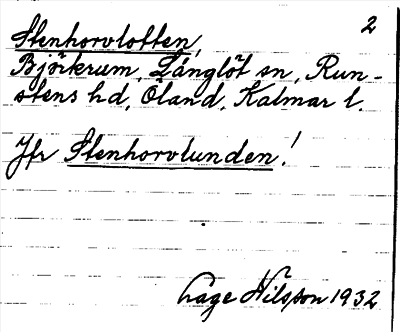 2
Stenhorvlotten,
Björkrum, Långlöt sn, Run-
stens hd, Öland, Kalmar l.
Jfr Stenhorvlunden!
Åge Nilsson 1932